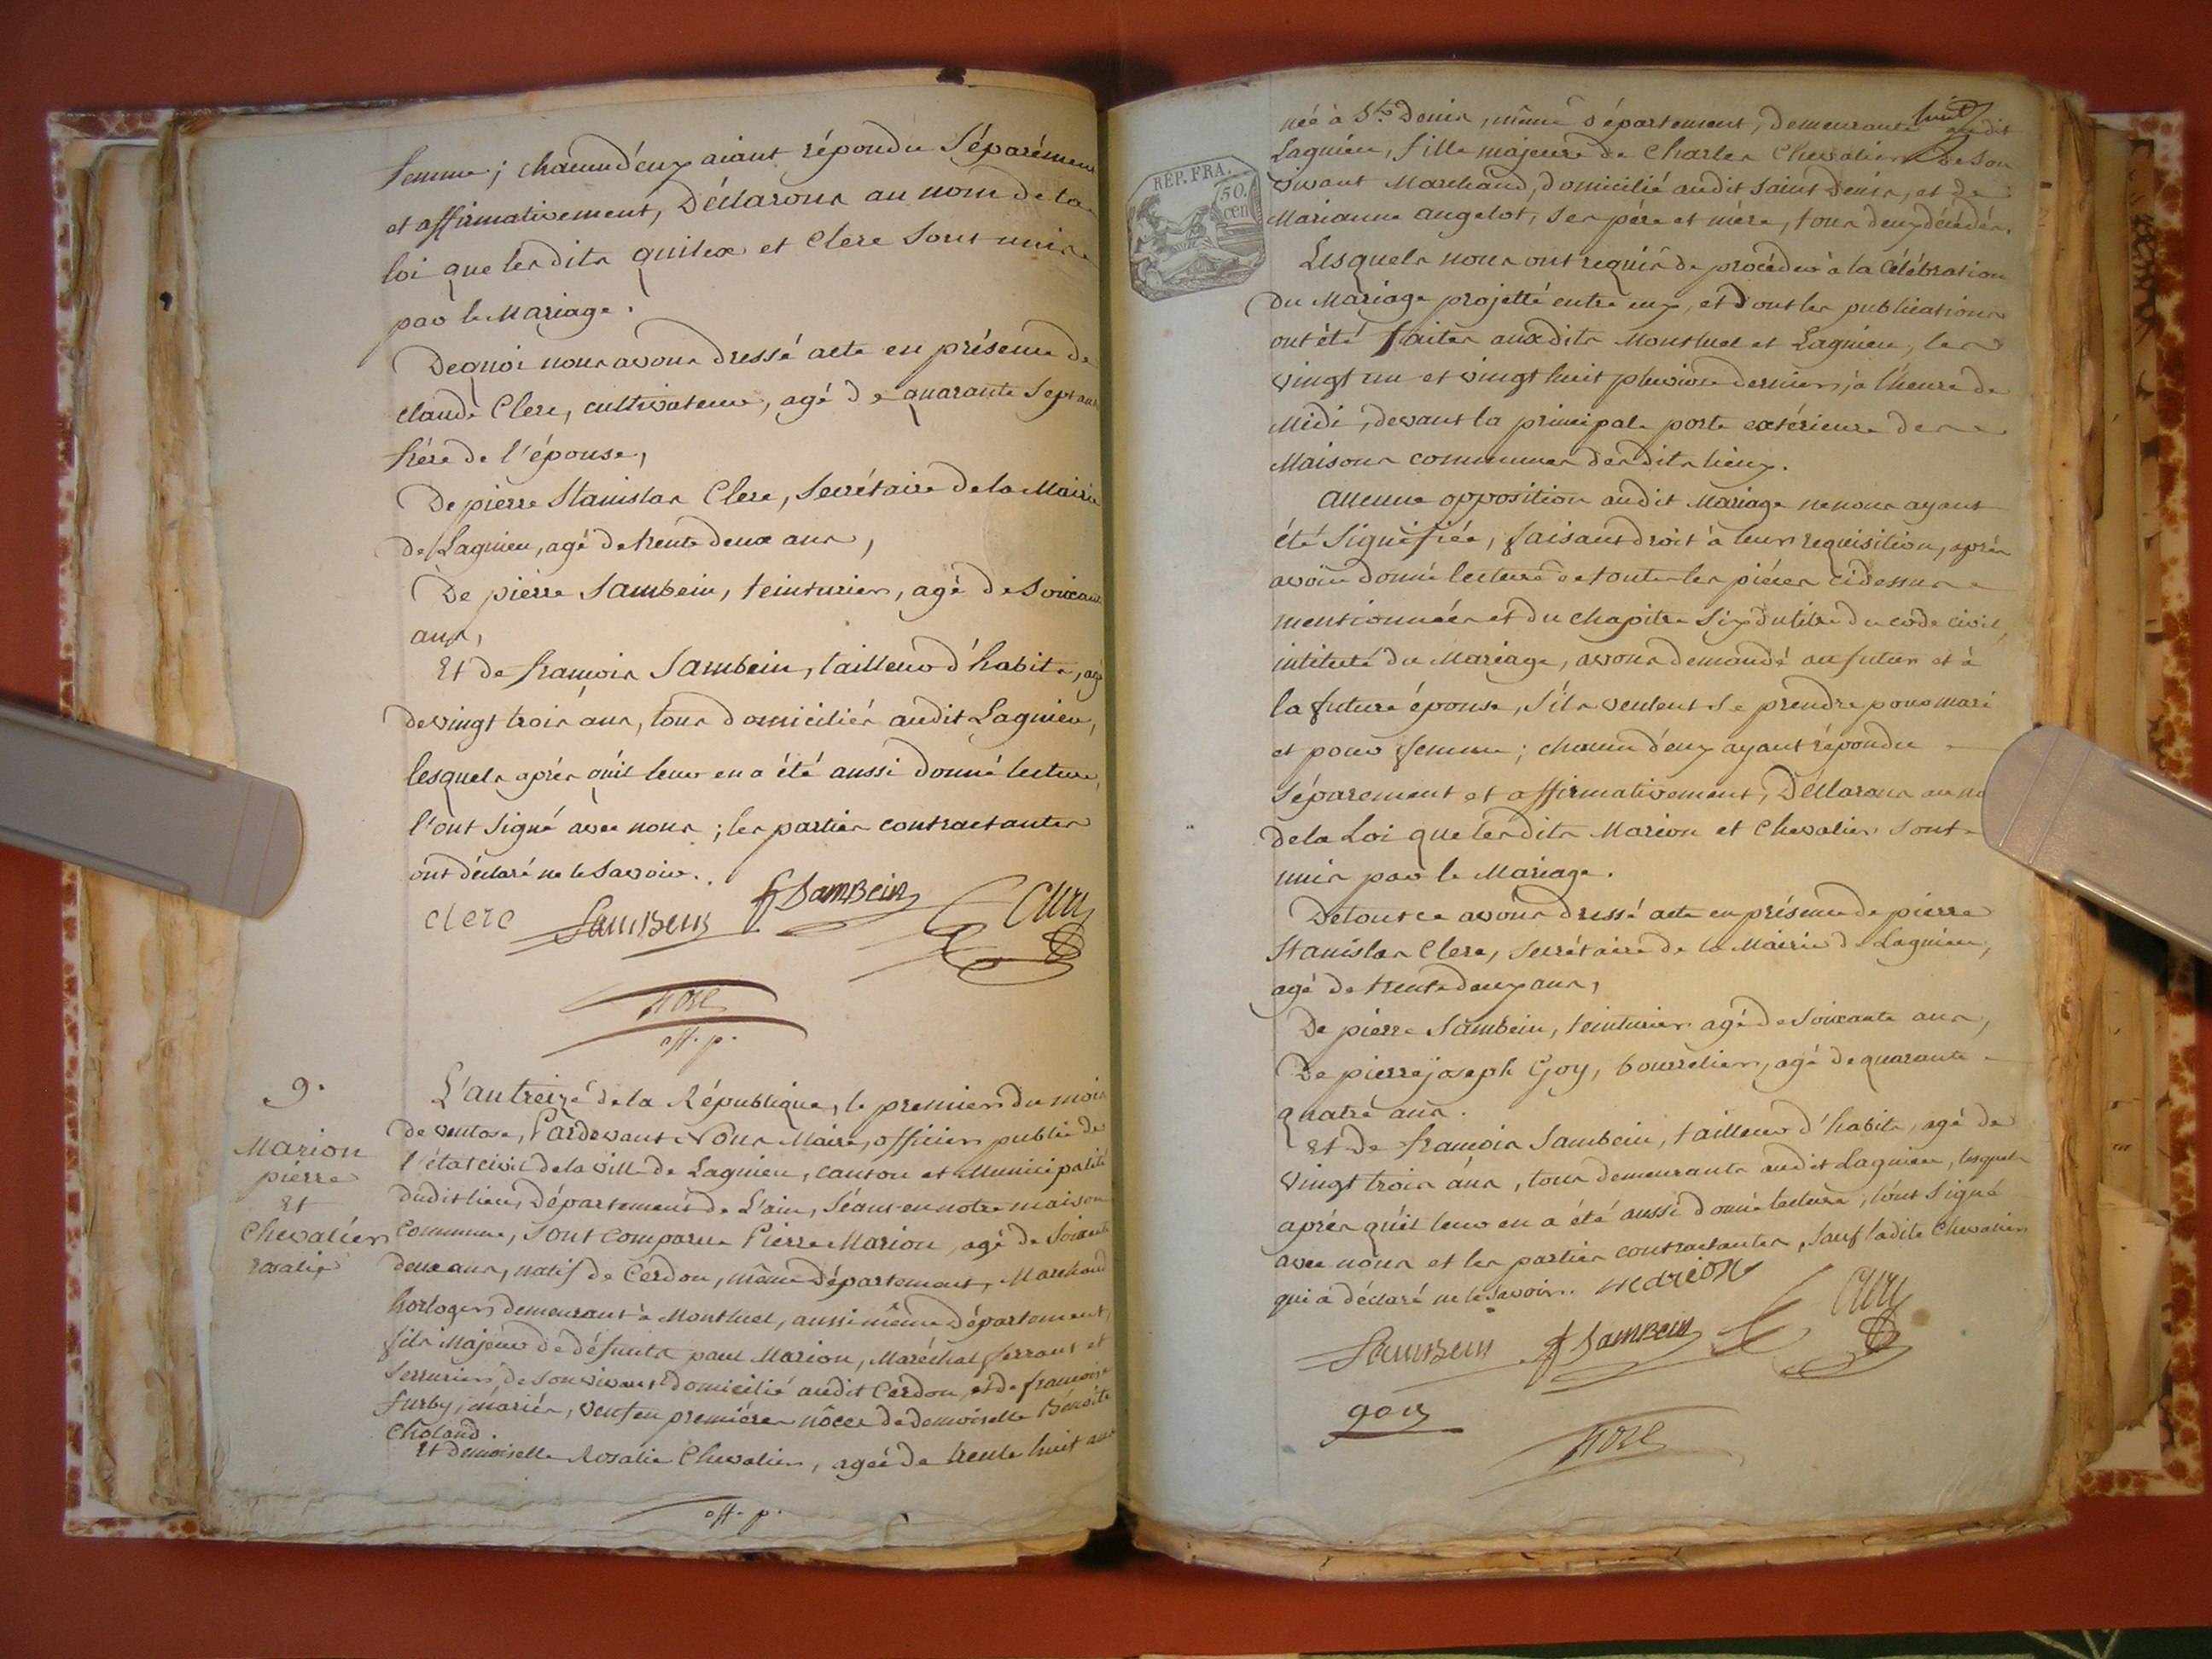 femme; chacun d'eux aiant répondu Séparément
et affirmativement, Déclarons au nom de la
loi que lesdits quilex et Clerc sont unis
par le Mariage.
De quoi nous avons dressé acte en présence de
claude Clerc, cultivateur, agé de quarante Sept ans
frére de l'épouse,
De pierre Stanislas Clerc, Secrétaire de la Mairie
de Lagnieu, agé de trente deux ans,
De pierre Sambein, teinturier, agé de Soixante
ans,
Et de françois Sambein, tailleur d'habits, agé
de vingt trois ans, tous domiciliés audit Lagnieu,
lesquels aprés qu'il leur en a été aussi donné lecture,
l'ont signé avec nous; les parties contractantes
ont déclaré ne le savoir.
clerc Sambein f Sambein Clerc
aff. p.
9.
Marion
pierre
Et
Chevalier
rosalie
L'an treize de la République, le premier du mois
de ventose, Pardevant Nous Maire, officier public de
l'état civil de la ville de Lagnieu, canton et Municipalité
dudit lieu, Département de L'ain, Séant en notre maison
Commune, sont comparus Pierre Marion, agé de Soixante
deux ans, natif de Cerdon, même Département, Marchand
horloger, demeurant à Montluel, aussi même Département,
fils Majeur de défunts paul Marion, Maréchal ferrant et
Serrurier, de son vivant domicilié audit Cerdon, et de francoise
furby, mariés, veuf en premiéres nôces de demoiselle Bénoite
Choland.
Et demoiselle Rosalie Chevalier, agée de trente huit ans
aff. p.
huit
RÉP. FRA.
50.
cen
née à St. Denis, même département, demeurante audit
Lagnieu, fille majeure de Charles Chevalier de son
vivant Marchand, domicilié audit saint denis, et de
Marianne angelot, ses pére et mére, tous deux décédés.
Lesquels nous ont requis de procéder à la Célébration
du Mariage projetté entre eux, et dont les publications
ont été faites auxdits Montluel et Lagnieu, les
vingt un et vingt huit pluviose dernier, à l'heure de
Midi, devant la principale porte extérieure des
Maisons communes desdits lieux.
Aucune opposition audit Mariage ne nous ayant
été Signifiée, faisant droit à leur requisition, aprés
avoir donné lecture de toutes les piéces cidessus
mentionnées et du chapitre Six du titre du code civil,
intitulé du Mariage, avons demandé au futur et à
la future épouse, s'ils veulent se prendre pour mari
et pour femme; chacun d'eux ayant répondu
Séparement et affirmativement, Déclarons au no
de la Loi que lesdits Marion et Chevalier sont
unis par le Mariage.
De tout ce avons dressé acte en présence de pierre
Stanislas Clerc, Secrétaire de la Mairie de Lagnieu,
agé de trente deux ans,
De pierre Sambein, teinturier agé de Soixante ans,
De pierre joseph Goy, bourrelier, agé de quarante
quatre ans.
Et de françois Sambein, tailleur d'habits, agé de
vingt trois ans, tous demeurants audit Lagnieu, lesquels
aprés qu'il leur en a été aussi donné lecture, l'ont signé
avec nous et les parties contractantes, sauf ladite Chevalier
qui a déclaré ne le savoir. marion
Sambein f Sambein Clerc
goy